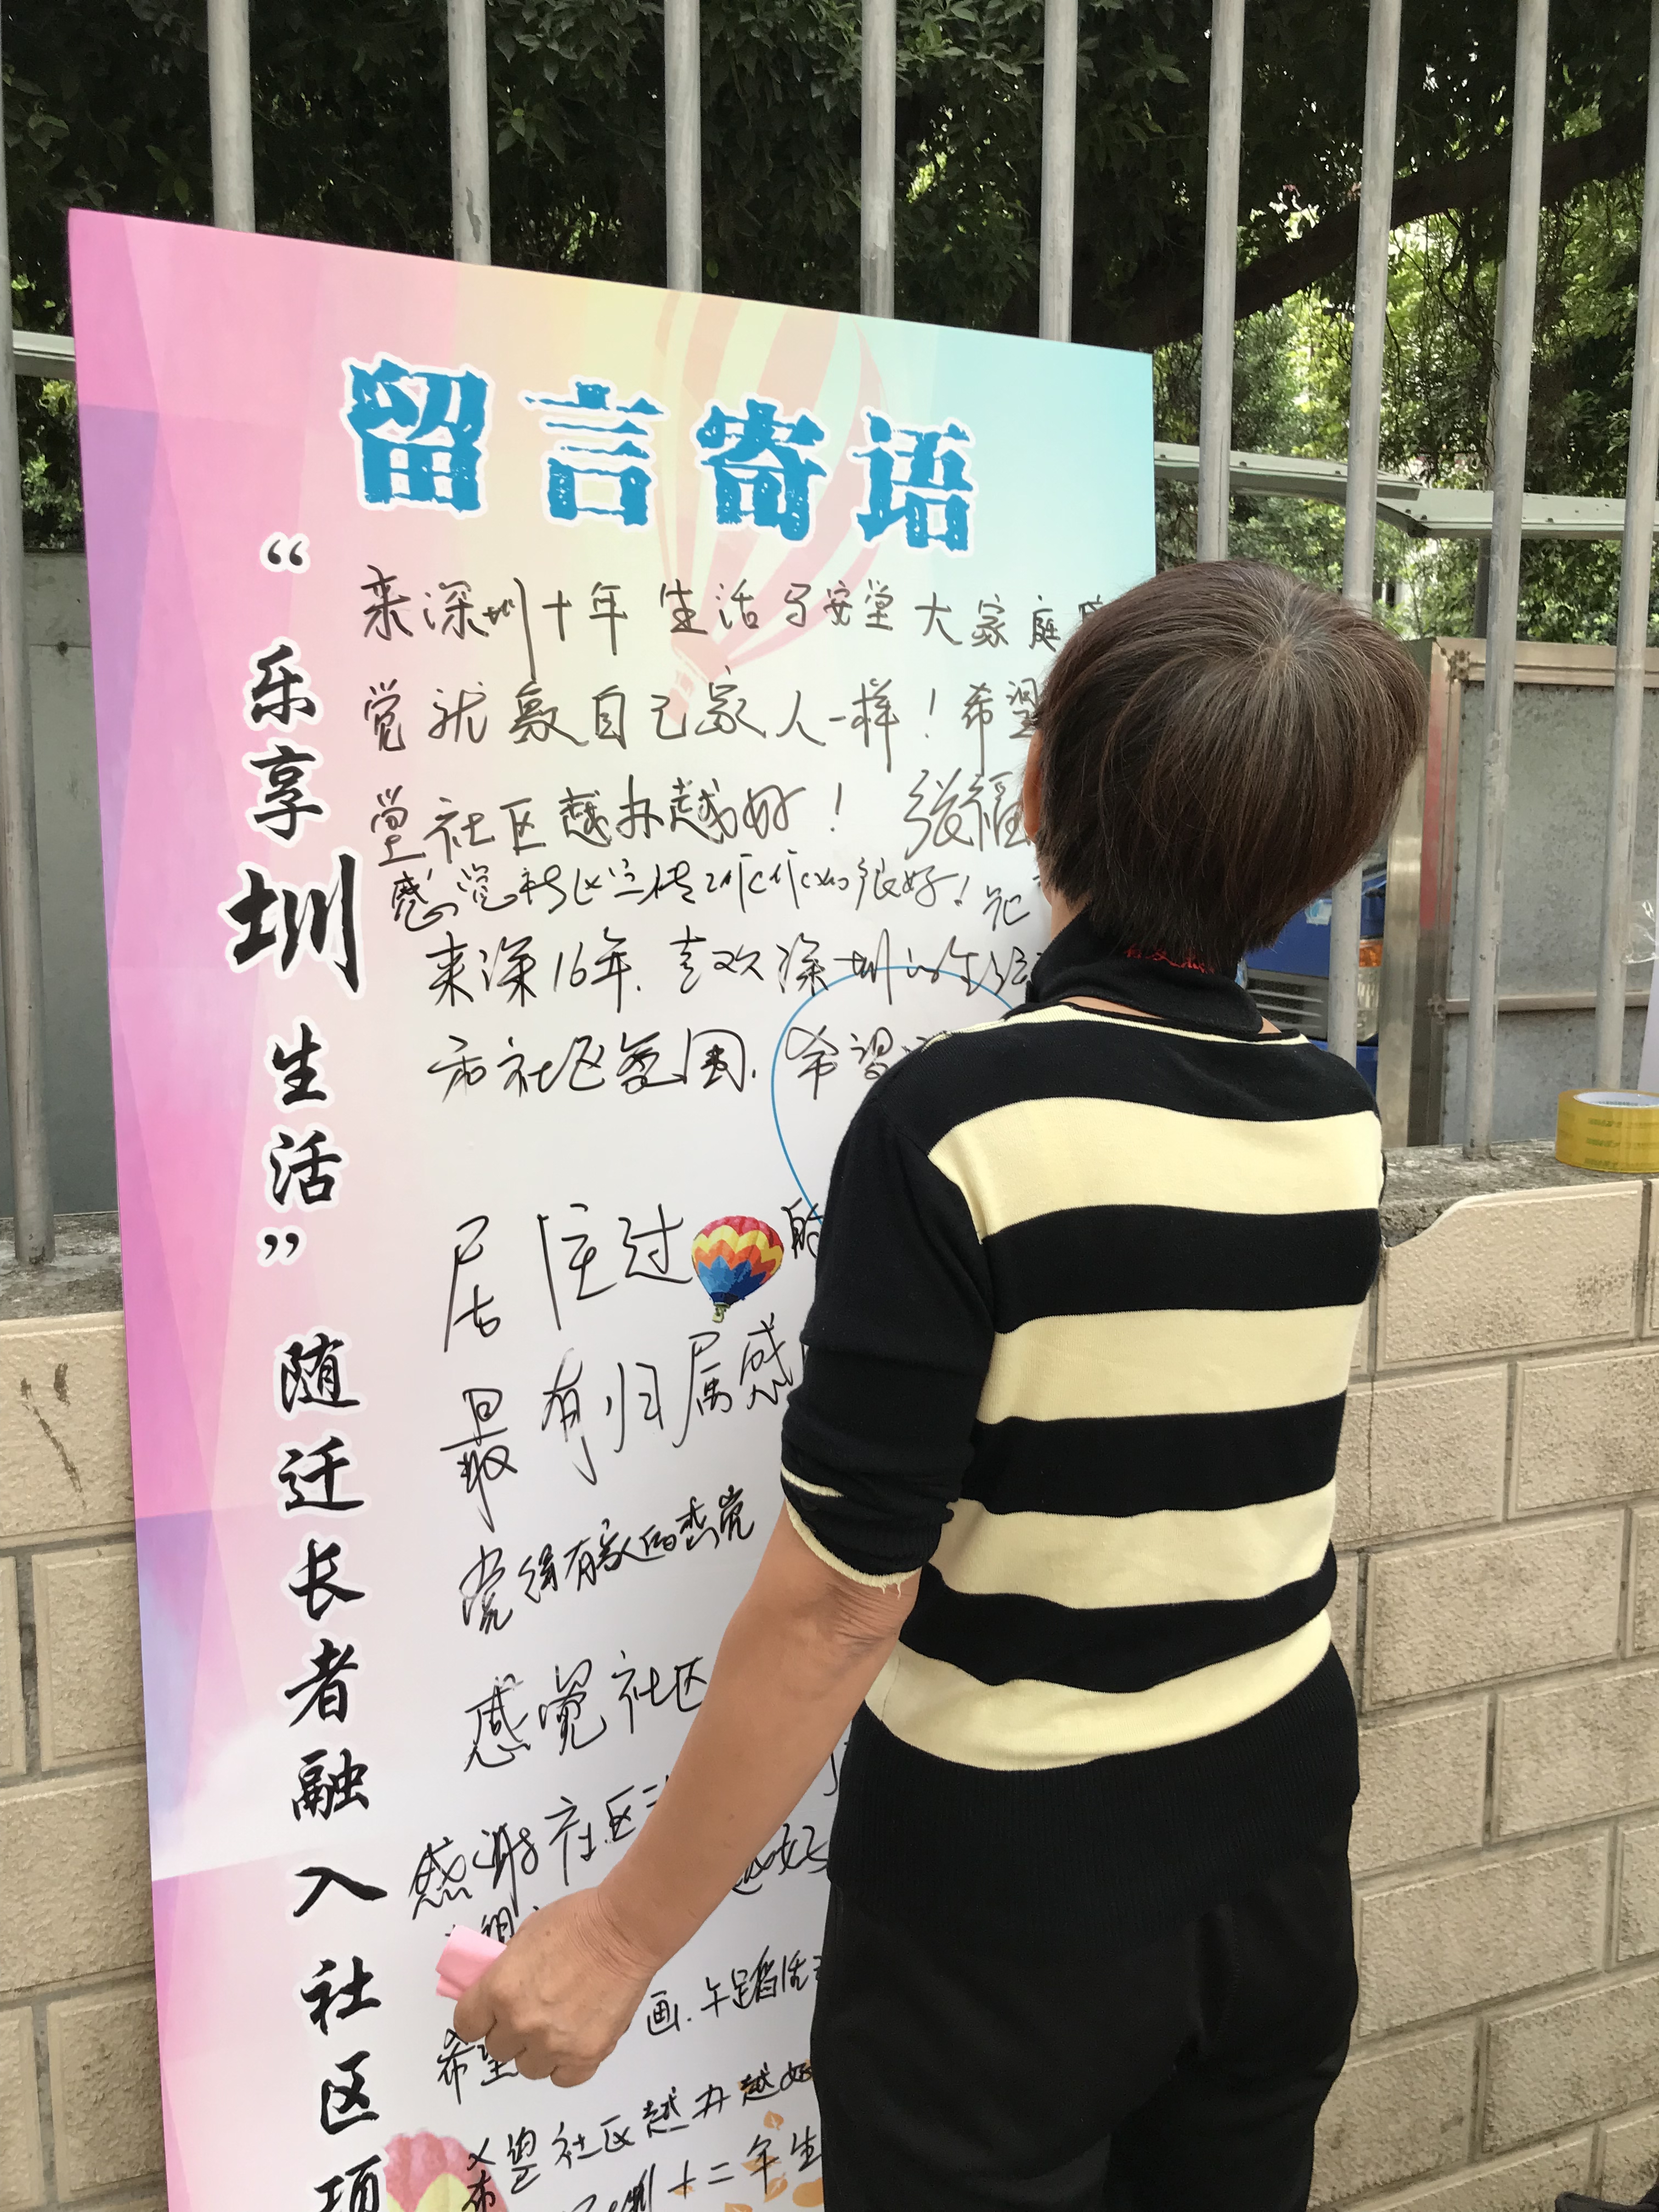 留言寄语
“乐享圳生活”随迁长者融入社区项
来深圳十年 生活与安堂大家庭感
觉就像自己家人一样！希望
堂社区越办越好！ 张福
感觉社区宣传工作做的很好！
来深16年.喜欢深圳的生活
和社区氛围.希望
居住过 的
最有归属感
觉得有家的感觉
感觉社区
感谢社区
越好
画.
希望
希望社区越办越好
圳十二年生